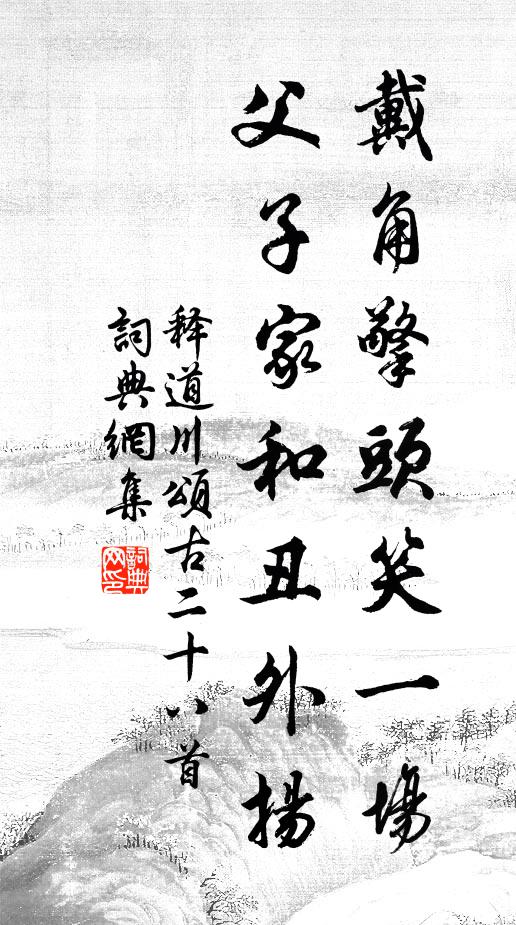 戴角擎頭笑一場
父子家和丑外揚
释道川頌古二十八首
詞典網集
詞典网印